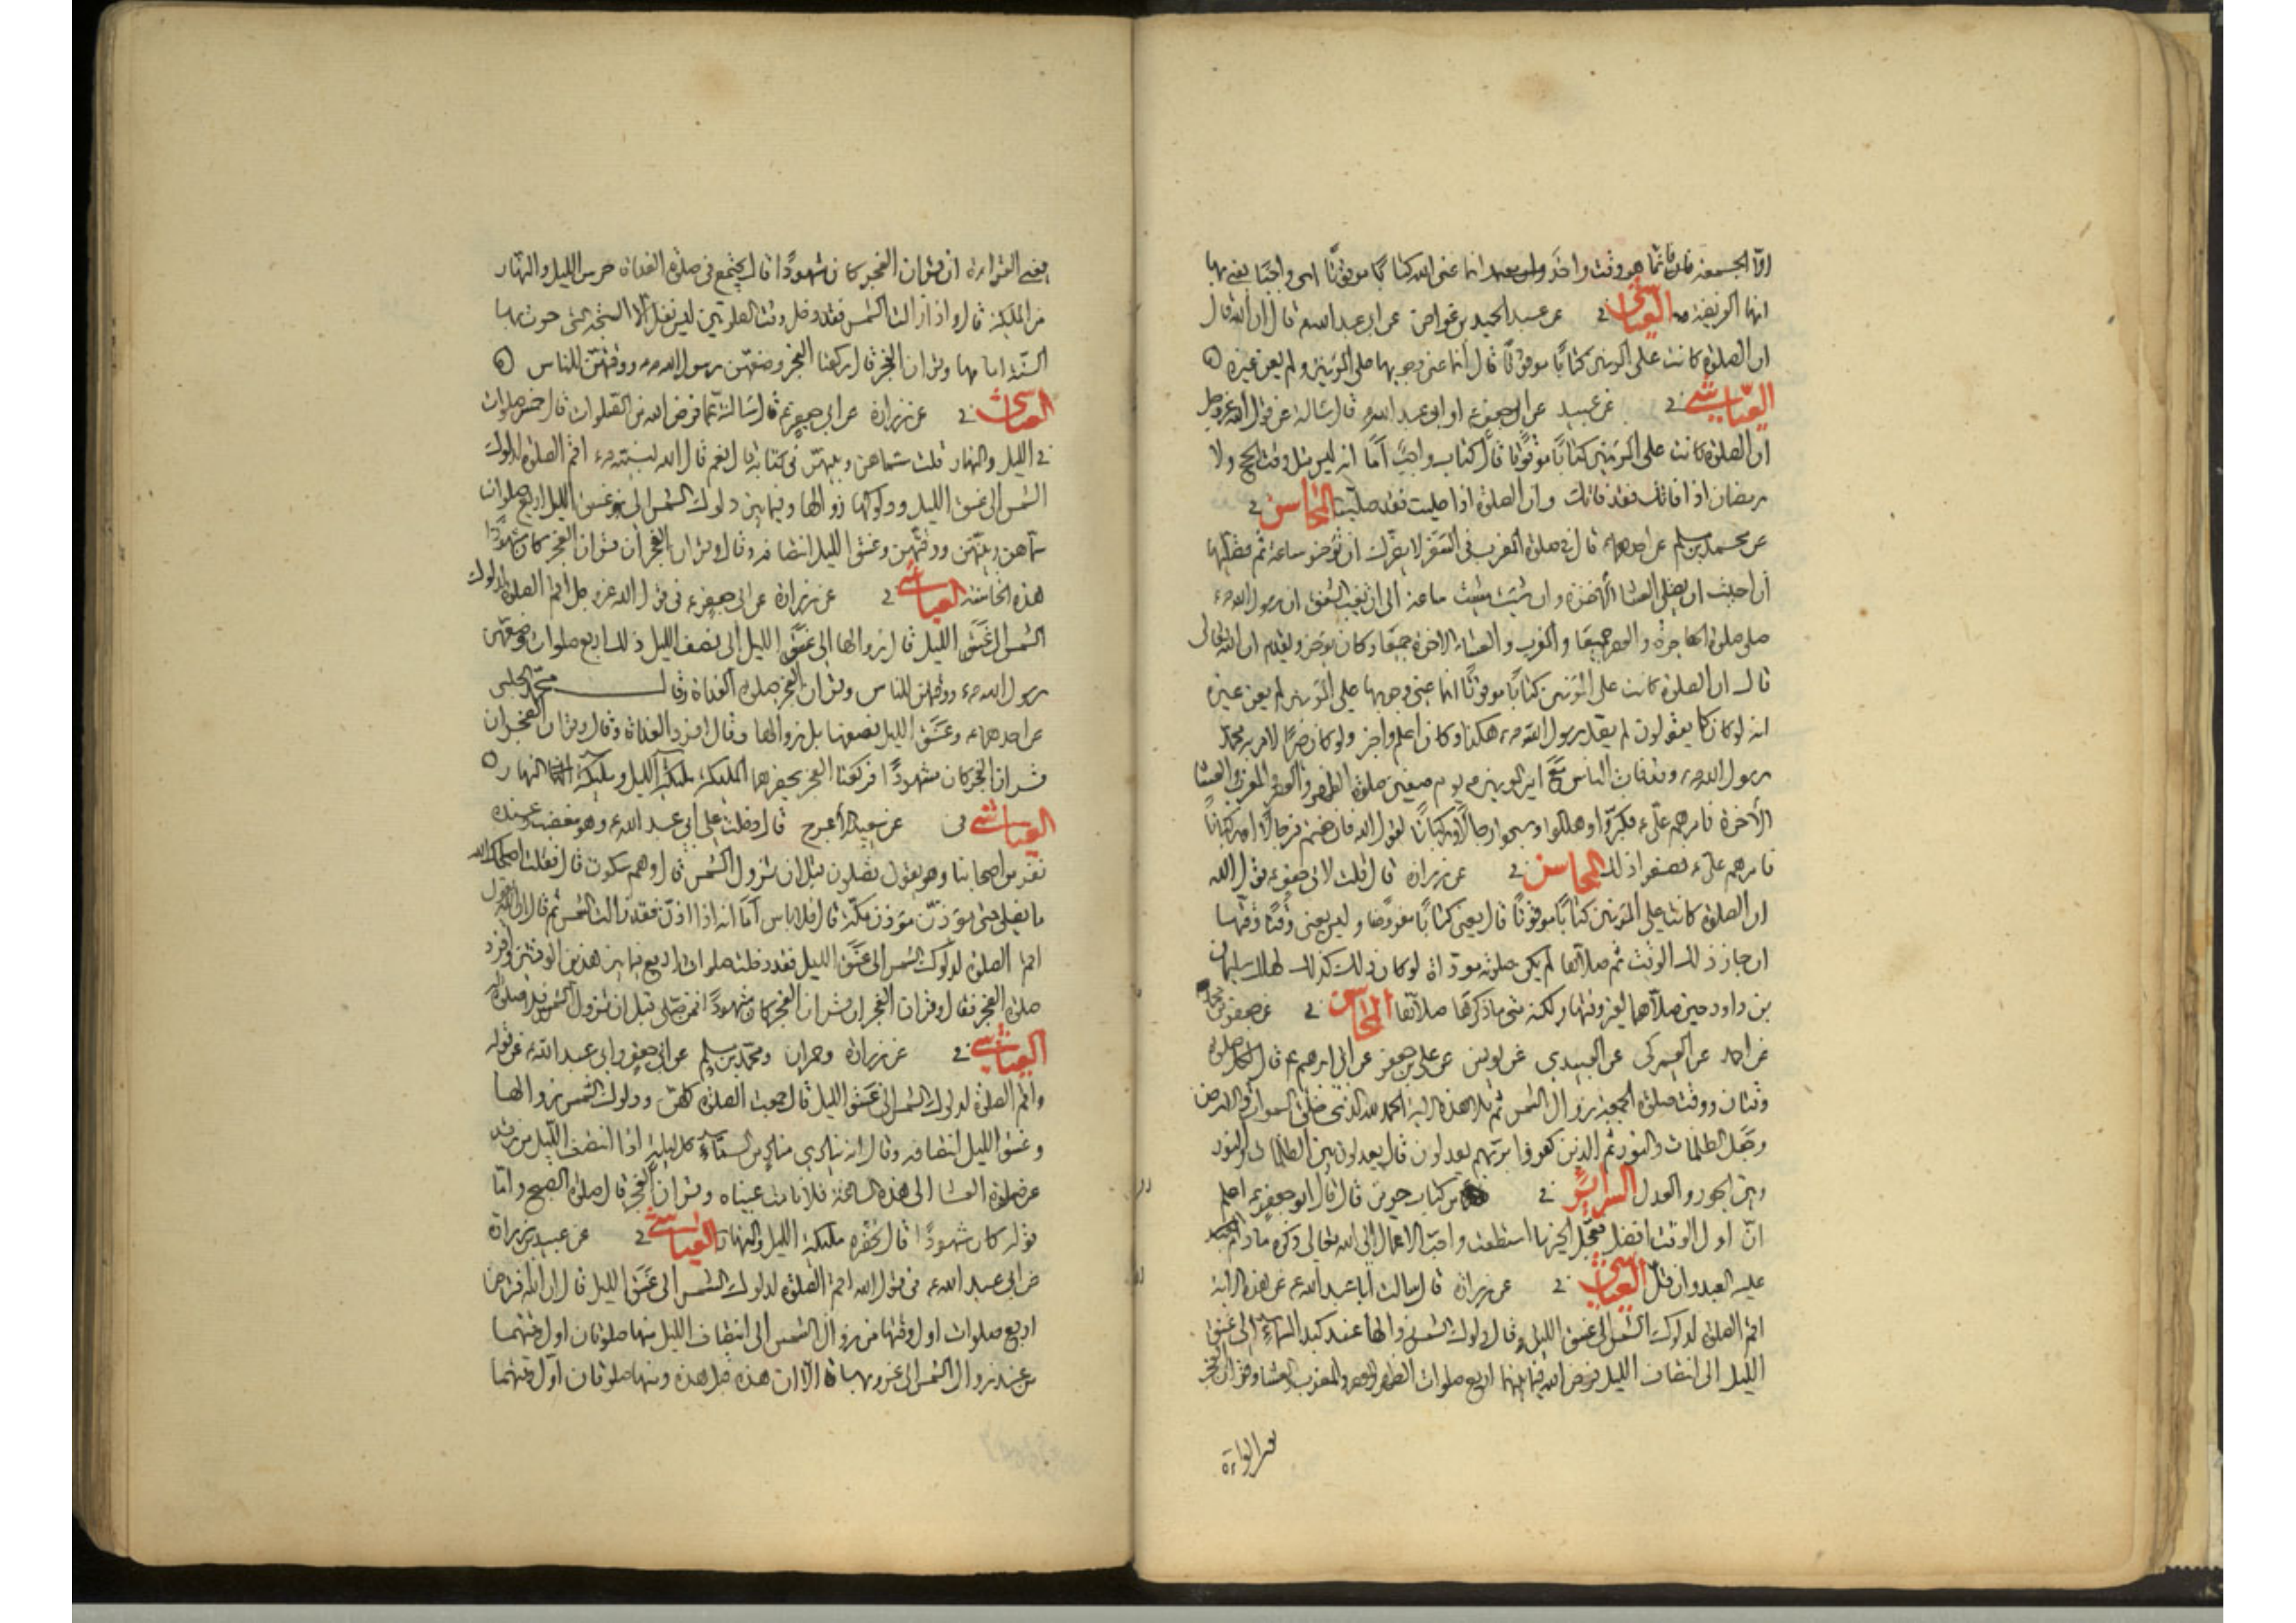 امّا الجمعة فانما هو وقت واحد وانما عنى الله كتابًا موقوتًا اى واجبًا يعنى بها
انها الفريضة العياشى فى عن عبد الحميد بن عواض عن ابى عبد الله ع قال ان الله قال
ان الصلوة كانت على المؤمنين كتابًا موقوتًا قال انما عنى وجوبها على المؤمنين ولم يعن غيره
العيّاشى فى عن عبيد عن ابى جعفر ع او ابى عبد الله ع قال سالته عن قول الله عز وجل
ان الصلوة كانت على المؤمنين كتابًا موقوتًا قال كتاب واجب امّا انه ليس مثل وقت الحج ولا
رمضان اذا فاتك فقد فاتك وان الصلوة اذا صليت فقد صليت المحاسن فى
عن محمد بن مسلم عن احدهما ع قال فى صلوة المغرب فى السفر لا يضرك ان تؤخر ساعة ثم تصليها
ان احببت ان تصلى العشاء الاخرة وان شئت مشيت ساعة الى ان يغيب الشفق ان رسول الله ص
صلى صلوة الهاجرة والعصر جميعًا والمغرب والعشاء الاخرة جميعًا وكان يؤخر ويقدم ان الله تعالى
قال ان الصلوة كانت على المؤمنين كتابًا موقوتًا انما عنى وجوبها على المؤمنين لم يعن غيره
انه لو كان كما يقولون لم يصل رسول الله ص هكذا وكان اعلم واخبر ولو كان خيرًا لامر به محمد
رسول الله ص وقد فات الناس مع امير المومنين ع يوم صفين صلوة الظهر والعصر والمغرب والعشاء
الأخرة فامرهم على ع فكبّروا وهللوا وسبحوا رجالًا وركبانًا لقول الله فان خفتم فرجالًا او ركبانًا
فامرهم على ع فصنعوا ذلك المحاسن فى عن زرارة قال قلت لابى جعفر ع قول الله
ان الصلوة كانت على المؤمنين كتابًا موقوتًا قال يعنى كتابًا مفروضًا وليس يعنى وقتًا وقتها
ان جاز ذلك الوقت ثم صلاها لم يكن صلوته مؤداة لو كان ذلك كذلك لهلك سليمان
بن داود حين صلاها لغير وقتها ولكنه متى ما ذكرها صلاها المحاسن فى عن جعفر بن محمد
عن احمد عن العمركى عن العبيدى عن يونس عن على بن جعفر عن ابى ابرهيم ع قال لكل صلوة
وقتان ووقت صلوة الجمعة زوال الشمس ثم تلا هذه الاية الحمد لله الذى خلق السموات والارض
وجعل الظلمات والنور ثم الذين كفروا بربهم يعدلون قال يعدلون بين الظلمات والنور
وبين الجور والعدل السرائر فى من كتاب حريز قال قال ابو جعفر ع اعلم
انّ اول الوقت افضل فعجّل الخير ما استطعت واحبّ الاعمال الى الله تعالى ذكره ما دام
عليه العبد وان قلّ العياشى فى عن زرارة قال سالت ابا عبد الله ع عن هذه الاية
اقم الصلوة لدلوك الشمس الى غسق الليل قال دلوك الشمس زوالها عند كبد السماء الى غسق
الليل الى انتصاف الليل فرض الله فيما بينهما اربع صلوات الظهر والعصر والمغرب والعشاء وقران الفجر
يعنى القراءة
يعنى القراءة ان قران الفجر كان مشهودًا قال يجتمع فى صلوة الغداة حرس الليل والنهار
من الملئكة قال واذا زالت الشمس فقد دخل وقت الصلوتين ليس نفل الا السبحة التى جرت بها
السنّة امامها وقران الفجر قال ركعتا الفجر وضعهنّ رسول الله ص ووقّتهنّ للناس
العياشى فى عن زرارة عن ابى جعفر ع قال سالته عما فرض الله من الصلوات قال خمس صلوات
فى الليل والنهار قلت سماهن وبينهنّ فى كتابه قال نعم قال الله لنبيّه ص اقم الصلوة لدلوك
الشمس الى غسق الليل ودلوكها زوالها وفيما بين دلوك الشمس الى غسق الليل اربع صلوات
سماهن وبينهنّ ووقتهن وغسق الليل انتصافه وقال وقران الفجر ان قران الفجر كان مشهودًا
هذه الخامسة العياشى فى عن زرارة عن ابى جعفر ع فى قول الله عز وجل اقم الصلوة لدلوك
الشمس الى غسق الليل قال زوالها الى غسق الليل الى نصف الليل ذلك اربع صلوات وضعهن
رسول الله ص ووقتهن للناس وقران الفجر صلوة الغداة وقال محمد الحلبى
عن احدهما ع وغسق الليل نصفها بل زوالها وقال افرد الغداة وقال وقران الفجر ان
قران الفجر كان مشهودًا فركعتا الفجر يحضرهما الملئكة ملئكة الليل وملئكة النهار
العياشى فى عن سعيد الأعرج قال دخلت على ابى عبد الله ع وهو مغضب وعنده
نفر من اصحابنا وهو يقول تصلون قبل ان تزول الشمس قال وهم سكوت قال فقلت اصلحك الله
ما نصلى حتى يؤذّن مؤذن مكّة قال فلا باس امّا انه اذا اذّن فقد زالت الشمس ثم قال ان الله يقول
اقم الصلوة لدلوك الشمس الى غسق الليل فقد دخلت صلوات اربع فيما بين هذين الوقتين وافرد
صلوة الفجر فقال وقران الفجر ان قران الفجر كان مشهودًا فمن صلى قبل ان تزول الشمس فلا صلوة له
العياشى فى عن زرارة وحمران ومحمد بن مسلم عن ابى جعفر وابى عبد الله ع عن قوله
واقم الصلوة لدلوك الشمس الى غسق الليل قال جمعت الصلوة كلهنّ ودلوك الشمس زوالها
وغسق الليل انتصافه وقال انه ينادى مناد من السماء كل ليلة اذا انتصف الليل من رقد
عن صلوة العشاء الى هذه الساعة فلا نامت عيناه وقران الفجر قال صلوة الصبح وامّا
قوله كان مشهودًا قال تحضره ملئكة الليل والنهار العياشى فى عن عبيد بن زرارة
عن ابى عبد الله ع فى قول الله اقم الصلوة لدلوك الشمس الى غسق الليل قال ان الله فرض
اربع صلوات اول وقتها من زوال الشمس الى انتصاف الليل منها صلوتان اول وقتهما
من عند زوال الشمس الى غروبها الا ان هذه قبل هذه ومنها صلوتان اول وقتهما